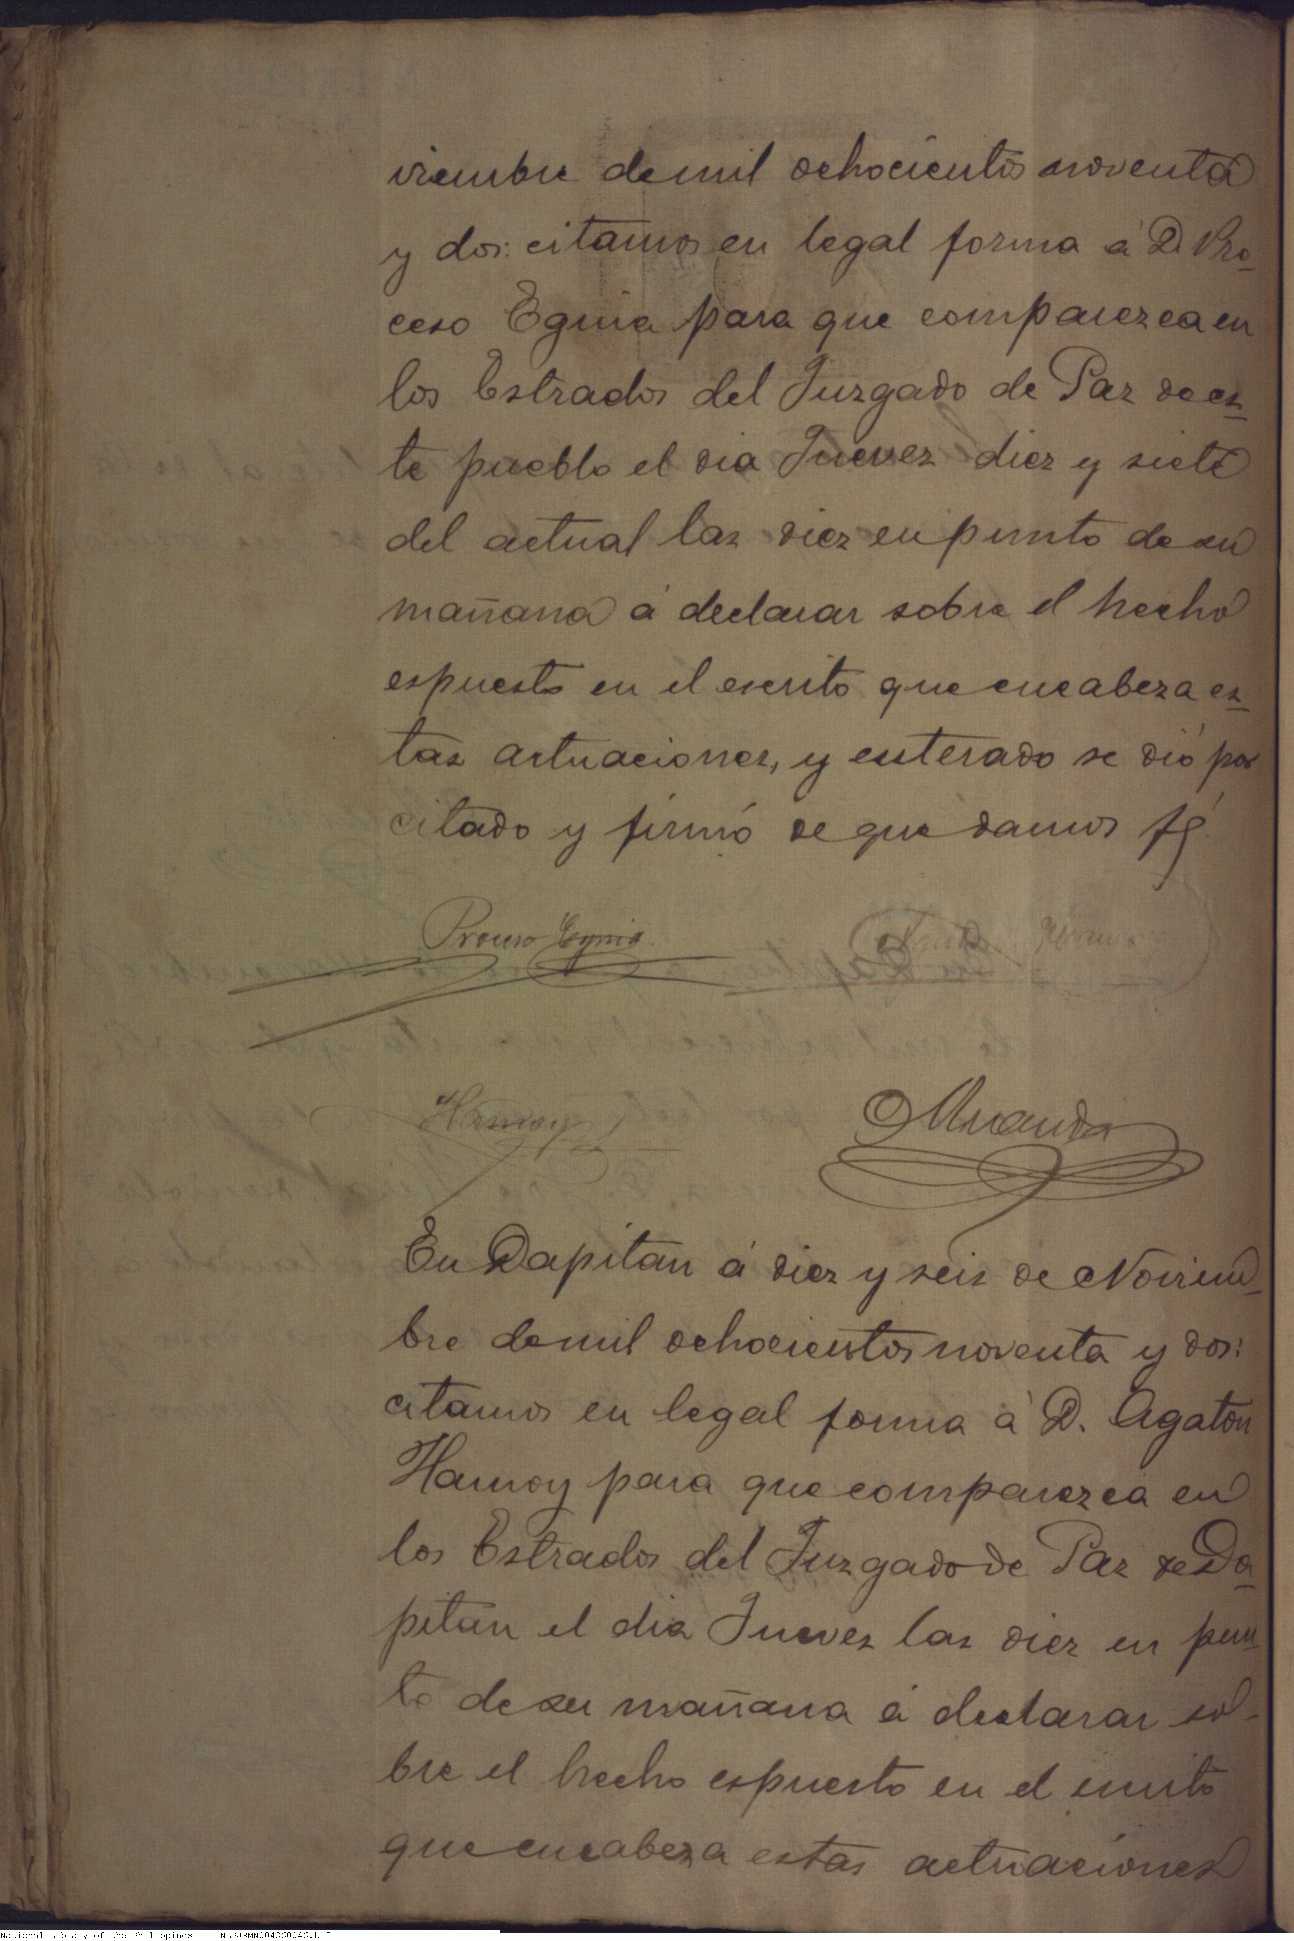 viembre de mil ochocientos noventa
y dos: citamos en legal forma á D. Pro-
ceso Eguia para que comparezca en
los Estrados del Juzgado de Paz de es-
te pueblo el dia Jueves diez y siete
del actual las diez en punto de su
mañana á declarar sobre el hecho
espuesto en el escrito que encabeza es-
tas actuaciones, y enterado se dió por
citado y firmó de que damos fé
Proceso Eguia
Hamoy
Miranda
En Dapitan á diez y seis de Noviem-
bre de mil ochocientos noventa y dos:
citamos en legal forma á D. Agaton
Hamoy para que comparezca en
los Estrados del Juzgado de Paz de Da-
pitan el dia Jueves las diez en pun-
to de su mañana á declarar so-
bre el hecho espuesto en el escrito
que encabeza estas actuaciones
National Library of the Philippines